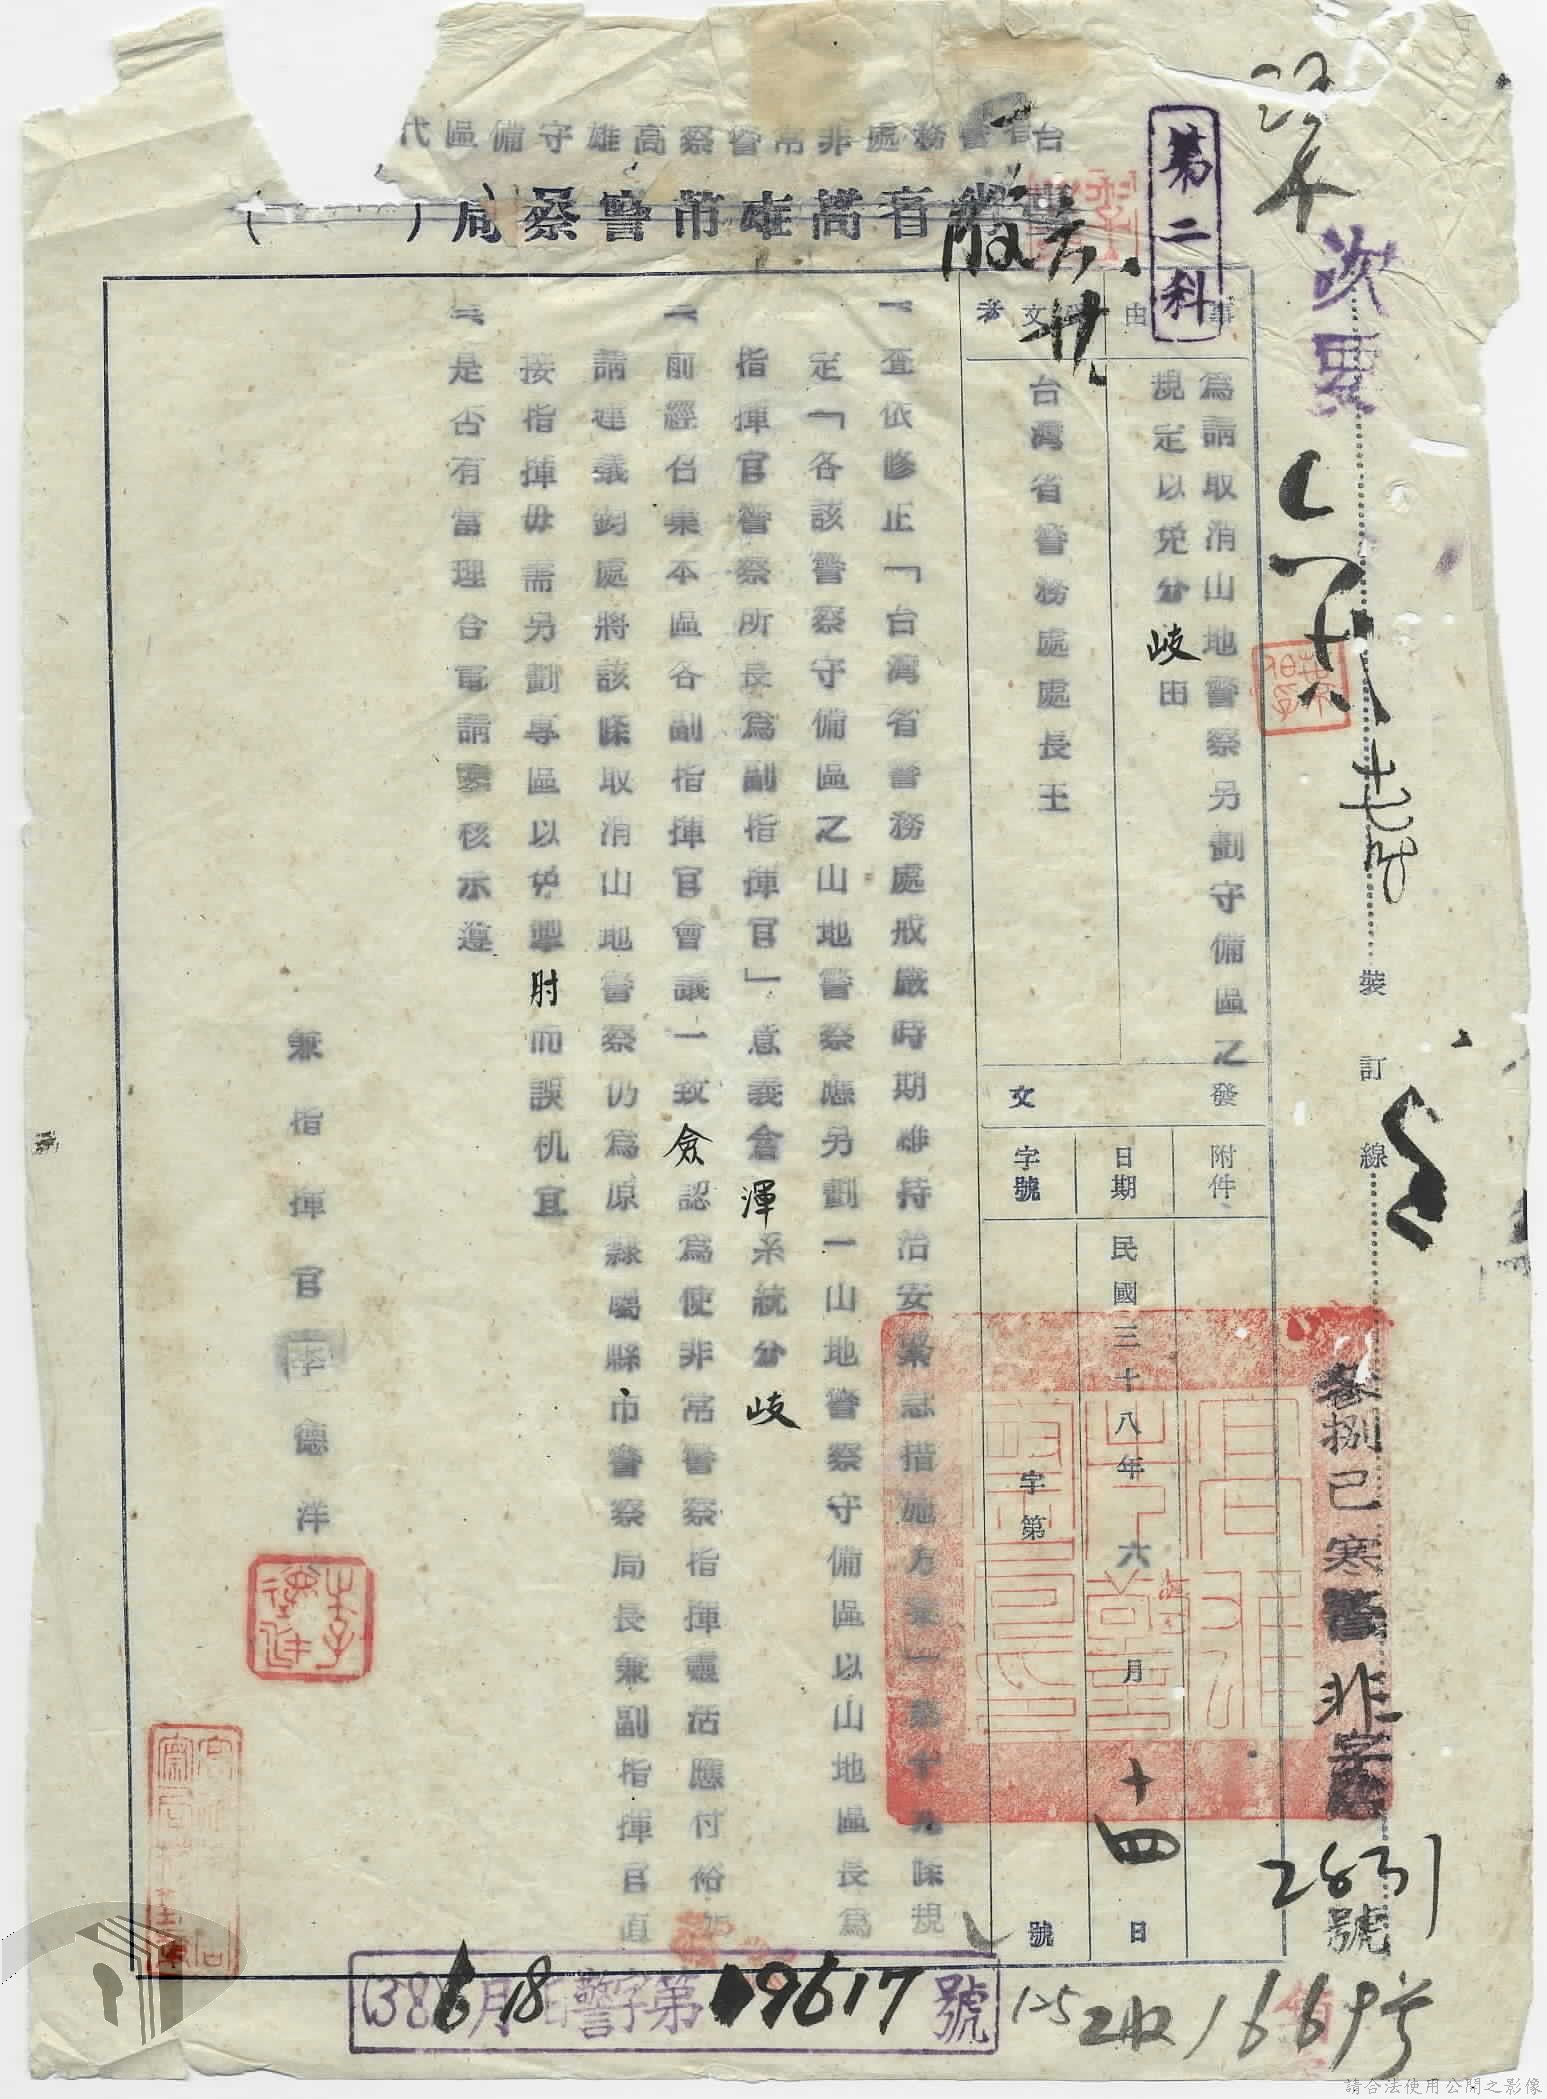 台省警務處非常警察高雄守備區代
省高雄市警察局( )
第二科
次要
事由
為請取消山地警察另劃守備區之
規定以免分岐由
受文者
台灣省警務處處長王
發文
附件
日期
民國三十八年六月十四日
字號
字第 號
裝訂線
參捌已寒警非字
2831號
一查依修正「台灣省警務處戒嚴時期維持治安緊急措施方案」第十九條規
定「各該警察守備區之山地警察應另劃一山地警察守備區以山地區長為
指揮官警察所長為副指揮官」意義倉渾系統分岐
二前經召集本區各副指揮官會議一致僉認為使非常警察指揮靈活應付裕如
請建議鈞處將該條取消山地警察仍為原隸屬縣市警察局長兼副指揮官直
接指揮毋需另劃專區以免掣肘而誤机宜
三是否有當理合電請鑒核示遵
兼指揮官李德洋
(38)6月18日警字第19617號
1669号
請合法使用公開之影像